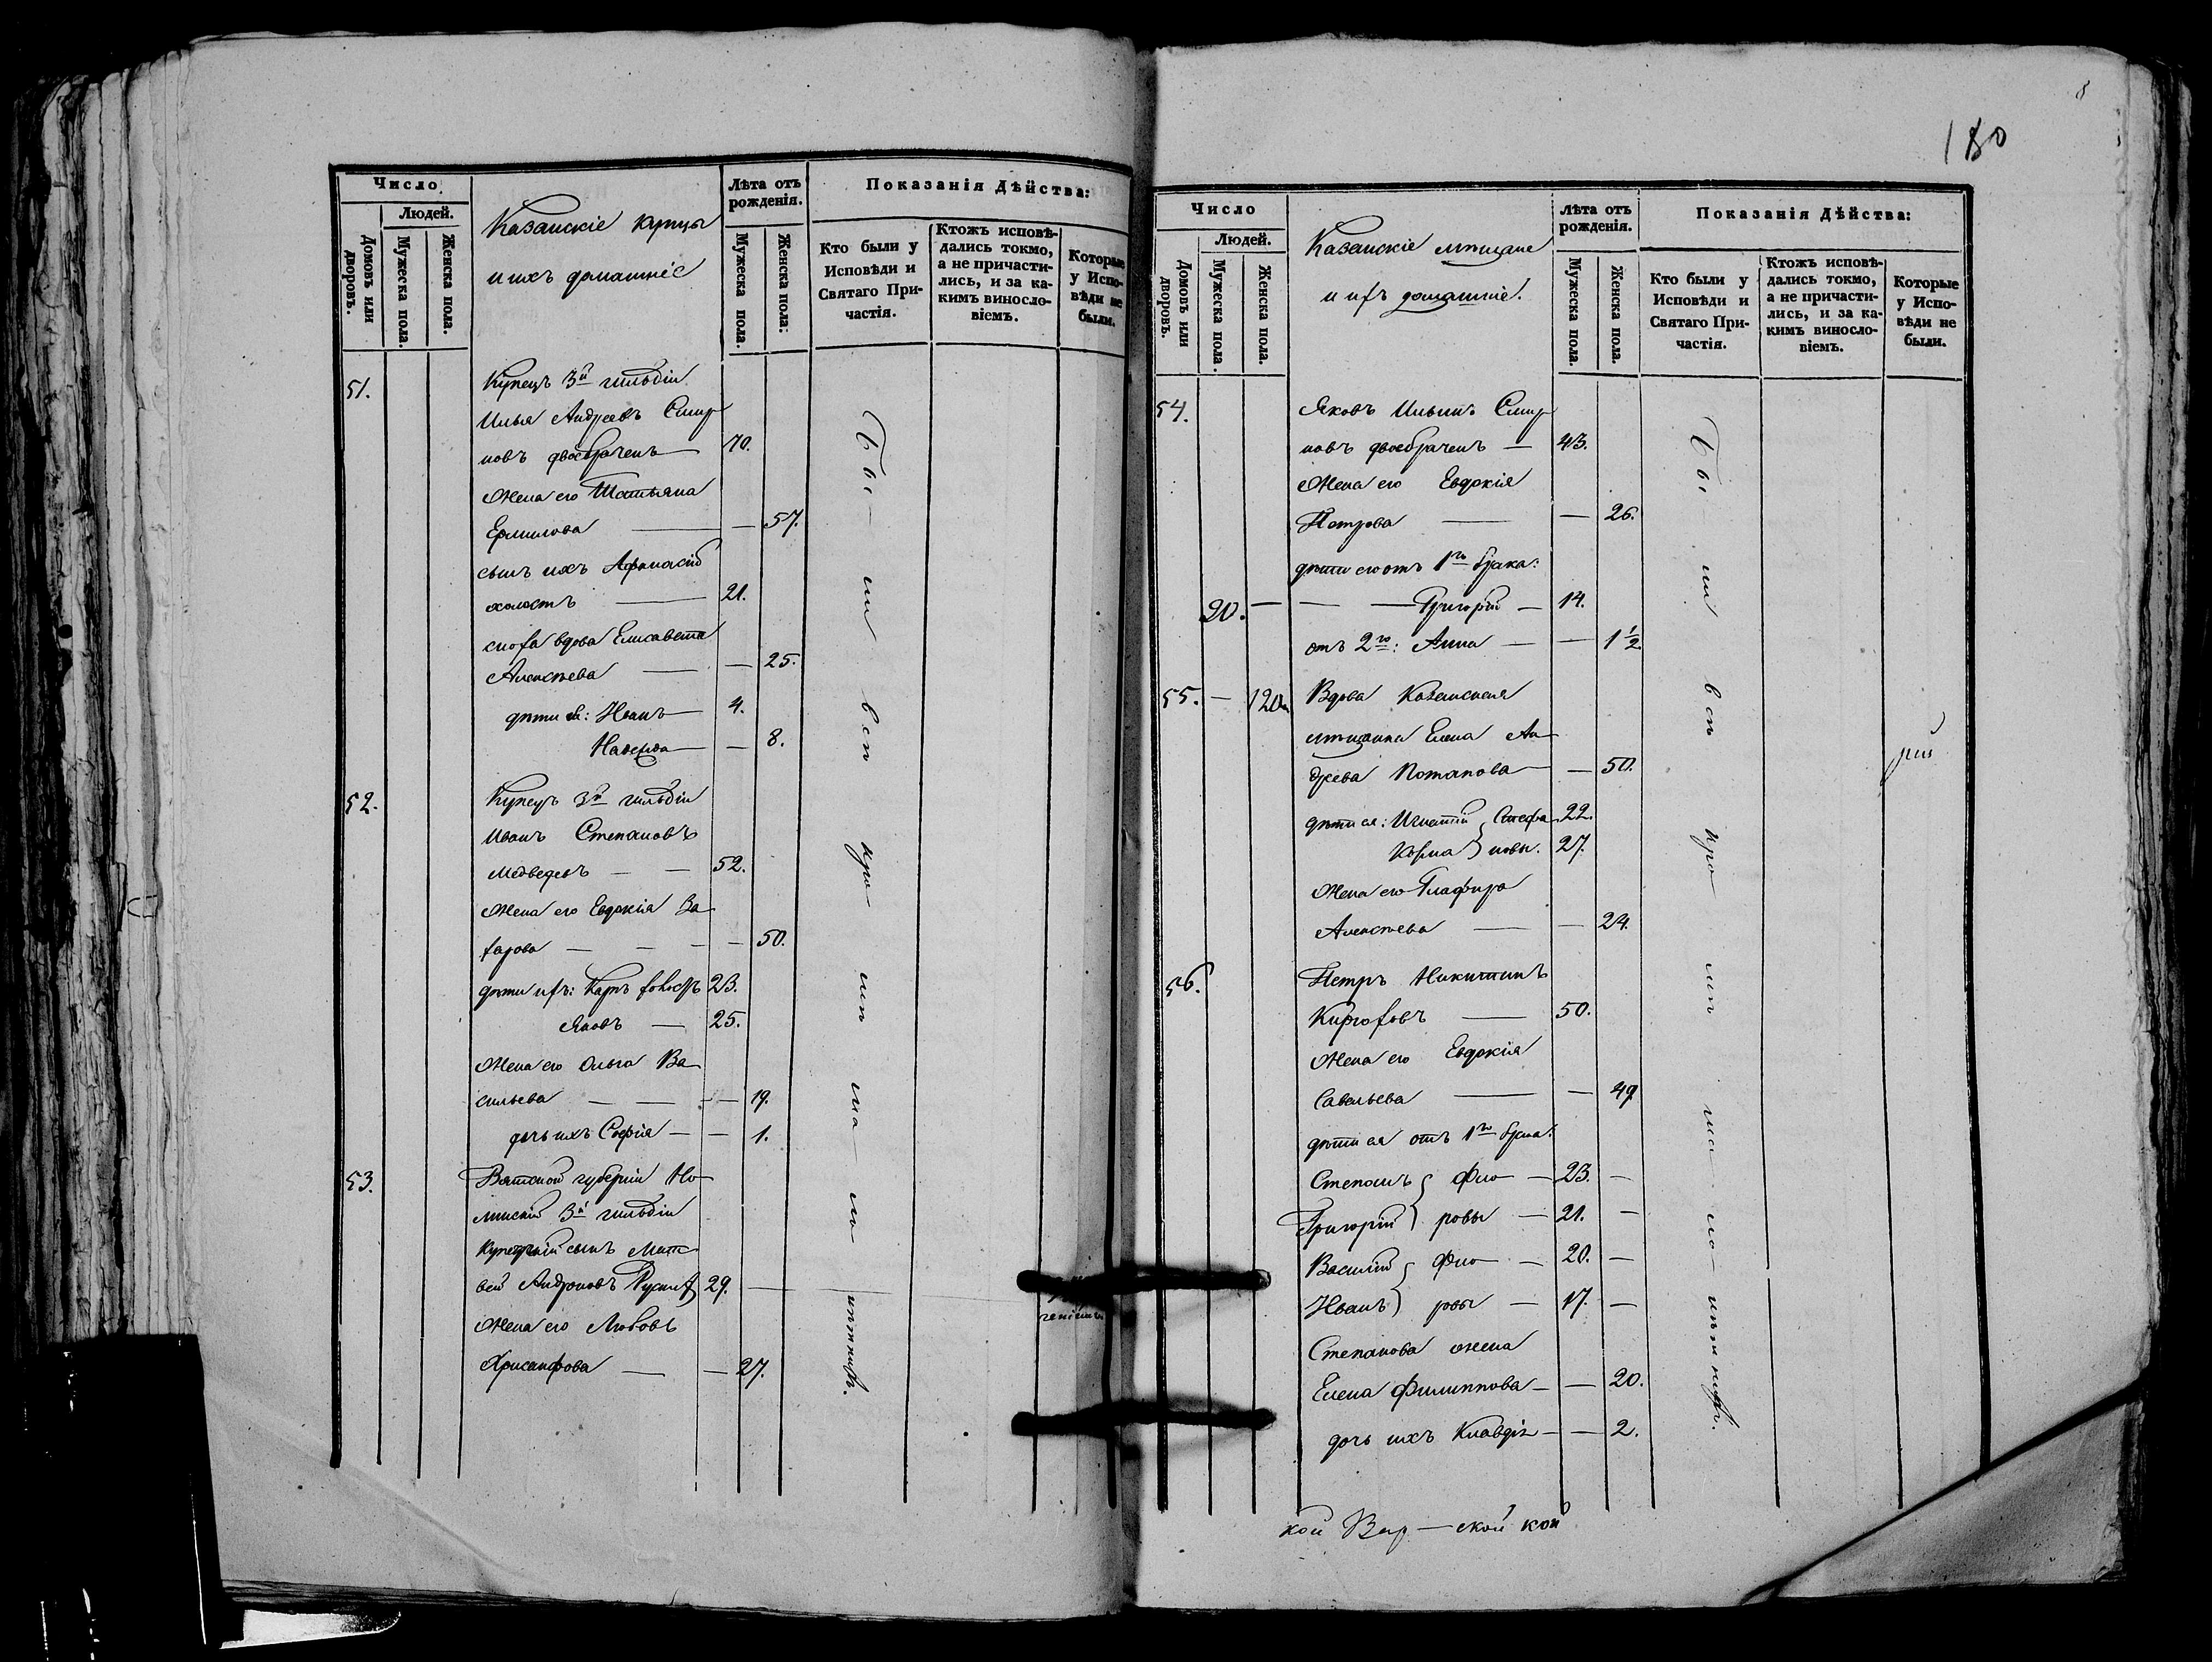 Число
Людей.
Домовъ или дворовъ.
Мужеска пола.
Женска пола.
Казанскіе купцы
и ихъ домашніе
Лѣта отъ рожденія.
Мужеска пола.
Женска пола:
Показанія Дѣйства:
Кто были у Исповѣди и Святаго Причастія.
Ктожъ исповѣдались токмо, а не причастились, и за какимъ винословіемъ.
Которые у Исповѣди не были.
51. Купецъ 3й гильдіи
Илья Андреевъ Смир
новъ двоебраченъ — 70.
Жена его Татьяна
Ермилова — — 57.
сынъ ихъ Афанасій
холостъ — 21.
сноха вдова Елисавета
Алексѣева — — 25.
дѣти ея: Иванъ — 4.
Надежда — — 8.
52. Купецъ 3й гильдіи
Иванъ Степановъ
Медведевъ — — 52.
Жена его Евдокія За
харова — — — — 50.
дѣти ихъ: Карпъ холостъ 23.
Яковъ — 25.
Жена его Ольга Ва
сильева — — — — 19.
дочь ихъ Софія — — 1.
53. Вятской губерніи Но
линскій 3й гильдіи
Купеческій сынъ Мат
вей Андроновъ 29. —
Жена его Любовь
Хрисанфова — — 27.
Бы — ли всѣ
180
Число
Людей.
Домовъ или дворовъ.
Мужеска пола.
Женска пола.
Казанскіе мѣщане
и ихъ домашніе.
Лѣта отъ рожденія.
Мужеска пола.
Женска пола.
Показанія Дѣйства:
Кто были у Исповѣди и Святаго Причастія.
Ктожъ исповѣдались токмо, а не причастились, и за какимъ винословіемъ.
Которые у Исповѣди не были.
54. Яковъ Ильинъ Смир
новъ двоебраченъ — 43.
Жена его Евдокія
Петрова — — 26.
дѣти его отъ 1го брака:
20. — — — Григорій — 14.
отъ 2го: Анна — — 1½
55. — 120. Вдова Казанская
мѣщанка Елена Ан
дреева Потапова — — 50.
дѣти ея: Игнатій } Стефа 22.
Козма } новы. 27.
Жена его Глафира
Алексѣева — — 24.
56. Петръ Никитинъ
— 50.
Жена его Евдокія
Савельева — — 49
дѣти ея отъ 1го брака:
Степанъ } Фио — 23. —
Григорій } ровы — 21. —
Василій } Фио — 20. —
Иванъ } ровы — 17. —
Степанова жена
Елена Филиппова — — 20.
дочь ихъ Клавдія — — 2.
Бы — ли всѣ
кой Вар — ской кой